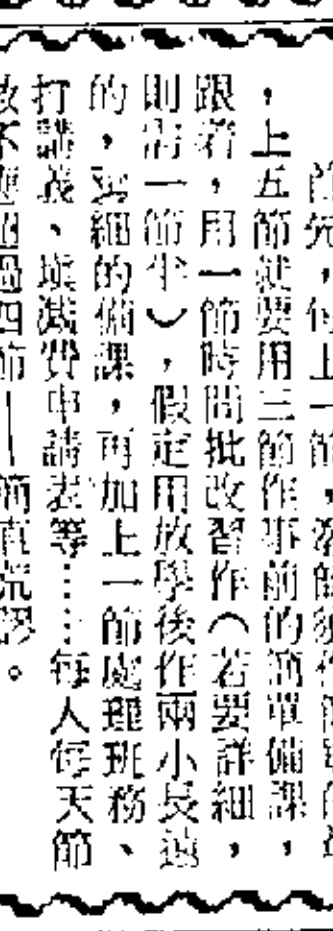 首先，每上一節，
，上五節就要用三節作事前的簡單備課，
跟着，用一節時間批改習作（若要詳細，
則需一節半），假定用放學後作兩小長遠
的，要細的備課，再加上一節處理班務、
打講義、填減費申請表等……每人每天節
不應超過四節—簡直荒謬。